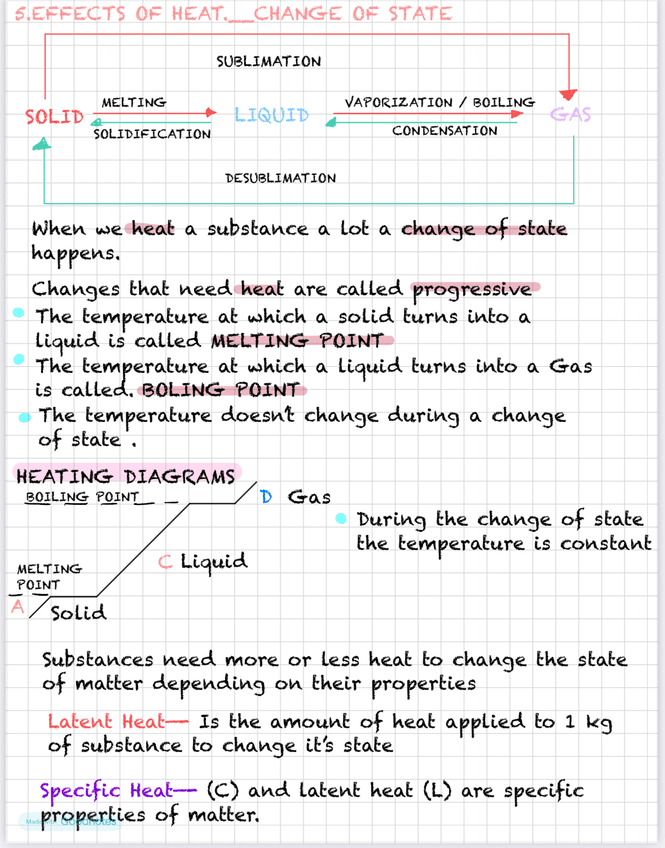 5.EFFECTS OF HEAT.__CHANGE OF STATE
SUBLIMATION
MELTING
VAPORIZATION / BOILING
SOLID
LIQUID
GAS
SOLIDIFICATION
CONDENSATION
DESUBLIMATION
When we heat a substance a lot a change of state
happens.
Changes that need heat are called progressive
The temperature at which a solid turns into a
liquid is called MELTING POINT
The temperature at which a liquid turns into a Gas
is called. BOLING POINT
The temperature doesn't change during a change
of state .
HEATING DIAGRAMS
BOILING POINT
D Gas
During the change of state
the temperature is constant
C Liquid
MELTING
POINT
A
Solid
Substances need more or less heat to change the state
of matter depending on their properties
Latent Heat— Is the amount of heat applied to 1 kg
of substance to change it's state
Specific Heat— (C) and latent heat (L) are specific
properties of matter.
Goodnotes